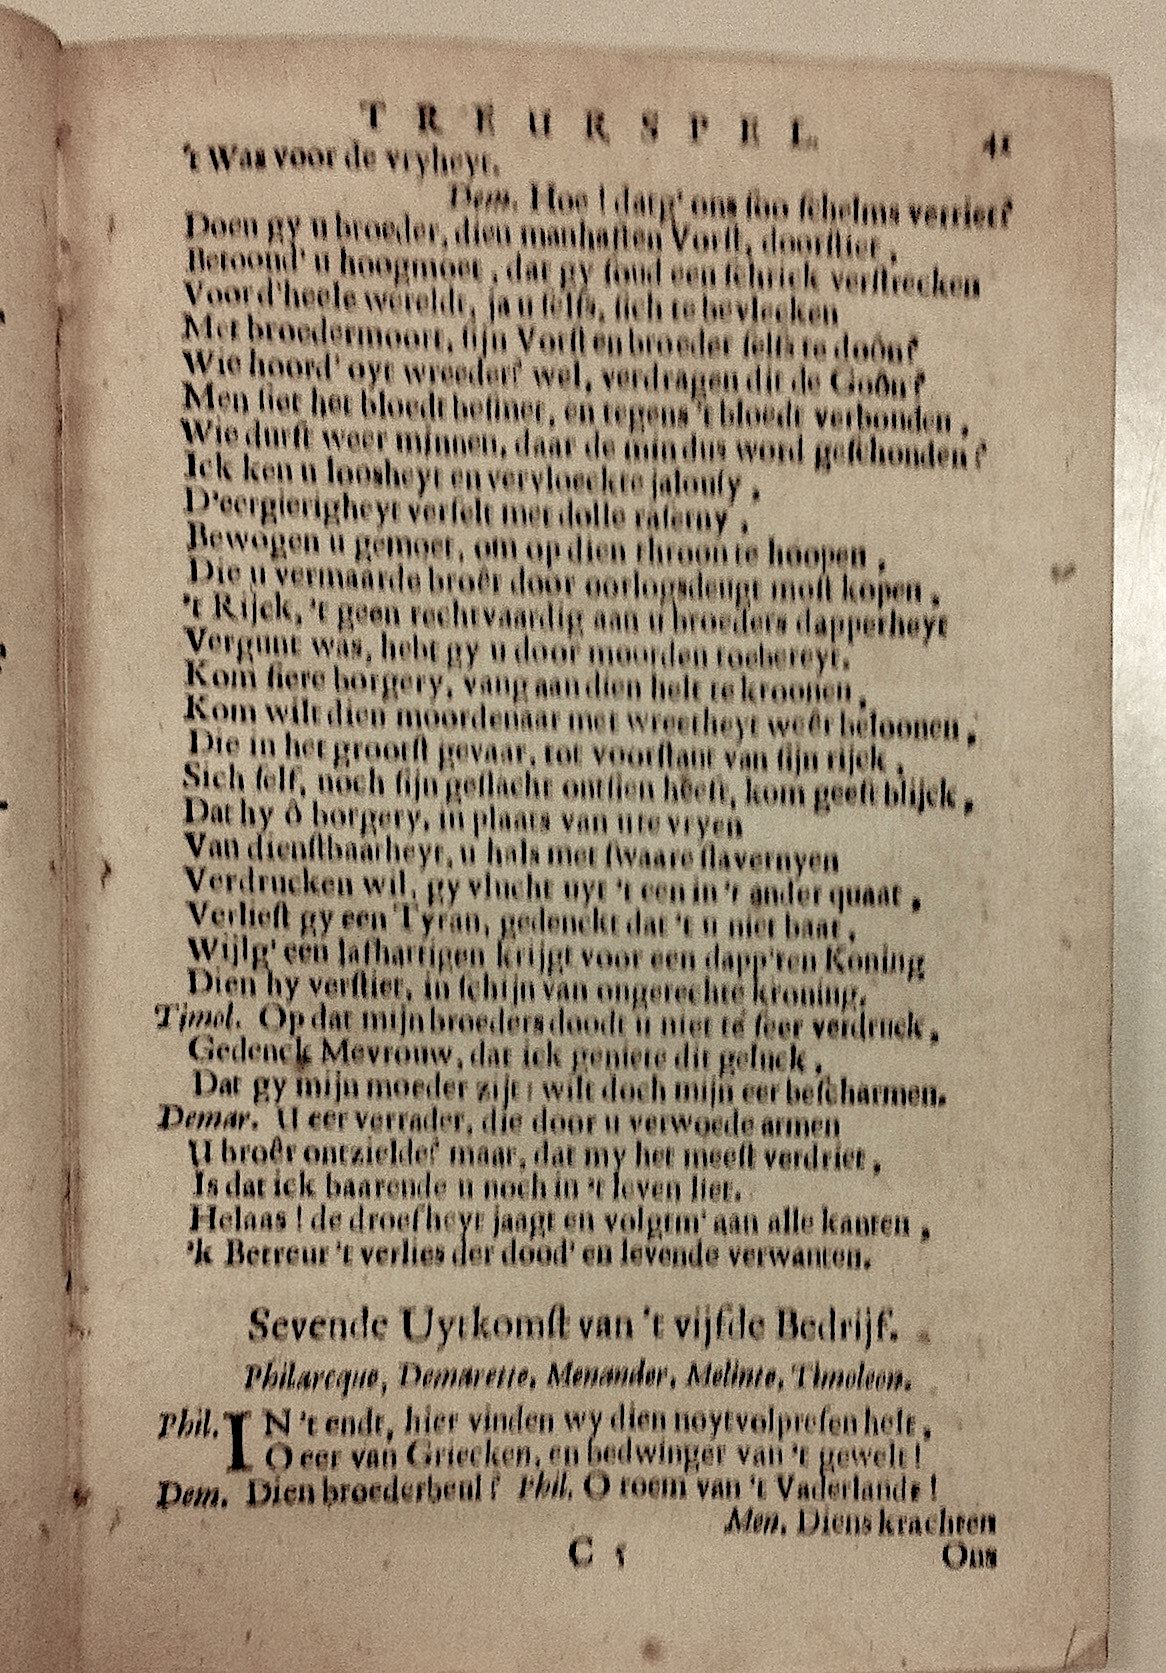 TREURSPEL. 41
't Was voor de vryheyt.
Dem. Hoe! datg' ons soo schelms verriet?
Doen gy u broeder, dien manhaften Vorst, doorstiet,
Betoond' u hoogmoet, dat gy soud een schrick verstrecken
Voor d'heele wereldt, ja u selfs, sich te bevlecken
Met broedermoort, sijn Vorst en broeder selfs te doôn?
Wie hoord' oyt wreeder? wel, verdragen dit de Goôn?
Men siet het bloedt besmet, en tegens 't bloedt verbonden,
Wie durft weer minnen, daar de min dus word geschonden?
Ick ken u loosheyt en vervloeckte jalousy,
D'eergierigheyt verselt met dolle raserny,
Bewogen u gemoet, om op dien throon te hoopen,
Die u vermaarde broêr door oorlogsdeugt most kopen,
't Rijck, 't geen rechtvaardig aan u broeders dapperheyt
Vergunt was, hebt gy u door moorden toebereyt.
Kom fiere borgery, vang aan dien helt te kroonen,
Kom wilt dien moordenaar met wreetheyt weêr beloonen,
Die in het grootst gevaar, tot voorstant van sijn rijck,
Sich self, noch sijn geslacht ontsien heeft, kom geeft blijck,
Dat hy ô borgery, in plaats van u te vryen
Van dienstbaarheyt, u hals met swaare slavernyen
Verdrucken wil, gy vlucht uyt 't een in 't ander quaat,
Verliest gy een Tyran, gedenckt dat 't u niet baat,
Wijlg' een lafhartigen krijgt voor een dapp'ren Koning
Dien hy verstiet, in schijn van ongerechte kroning.
Timol. Op dat mijn broeders doodt u niet te seer verdruck,
Gedenck Mevrouw, dat ick geniete dit geluck,
Dat gy mijn moeder zijt; wilt doch mijn eer beschermen.
Demar. U eer verrader, die door u verwoede armen
U broêr ontzielde? maar, dat my het meest verdriet,
Is dat ick baarende u noch in 't leven liet.
Helaas! de droefheyt jaagt en volgtm' aan alle kanten,
'k Betreur 't verlies der dood' en levende verwanten.
Sevende Uytkomst van 't vijfde Bedrijf.
Philarcque, Demarette, Menander, Melinte, Timoleon.
Phil. IN 't endt, hier vinden wy dien noytvolpresen helt,
O eer van Griecken, en bedwinger van 't gewelt!
Dem. Dien broederbeul? Phil. O roem van 't Vaderlandt!
Men. Diens krachten
C 5 Ons